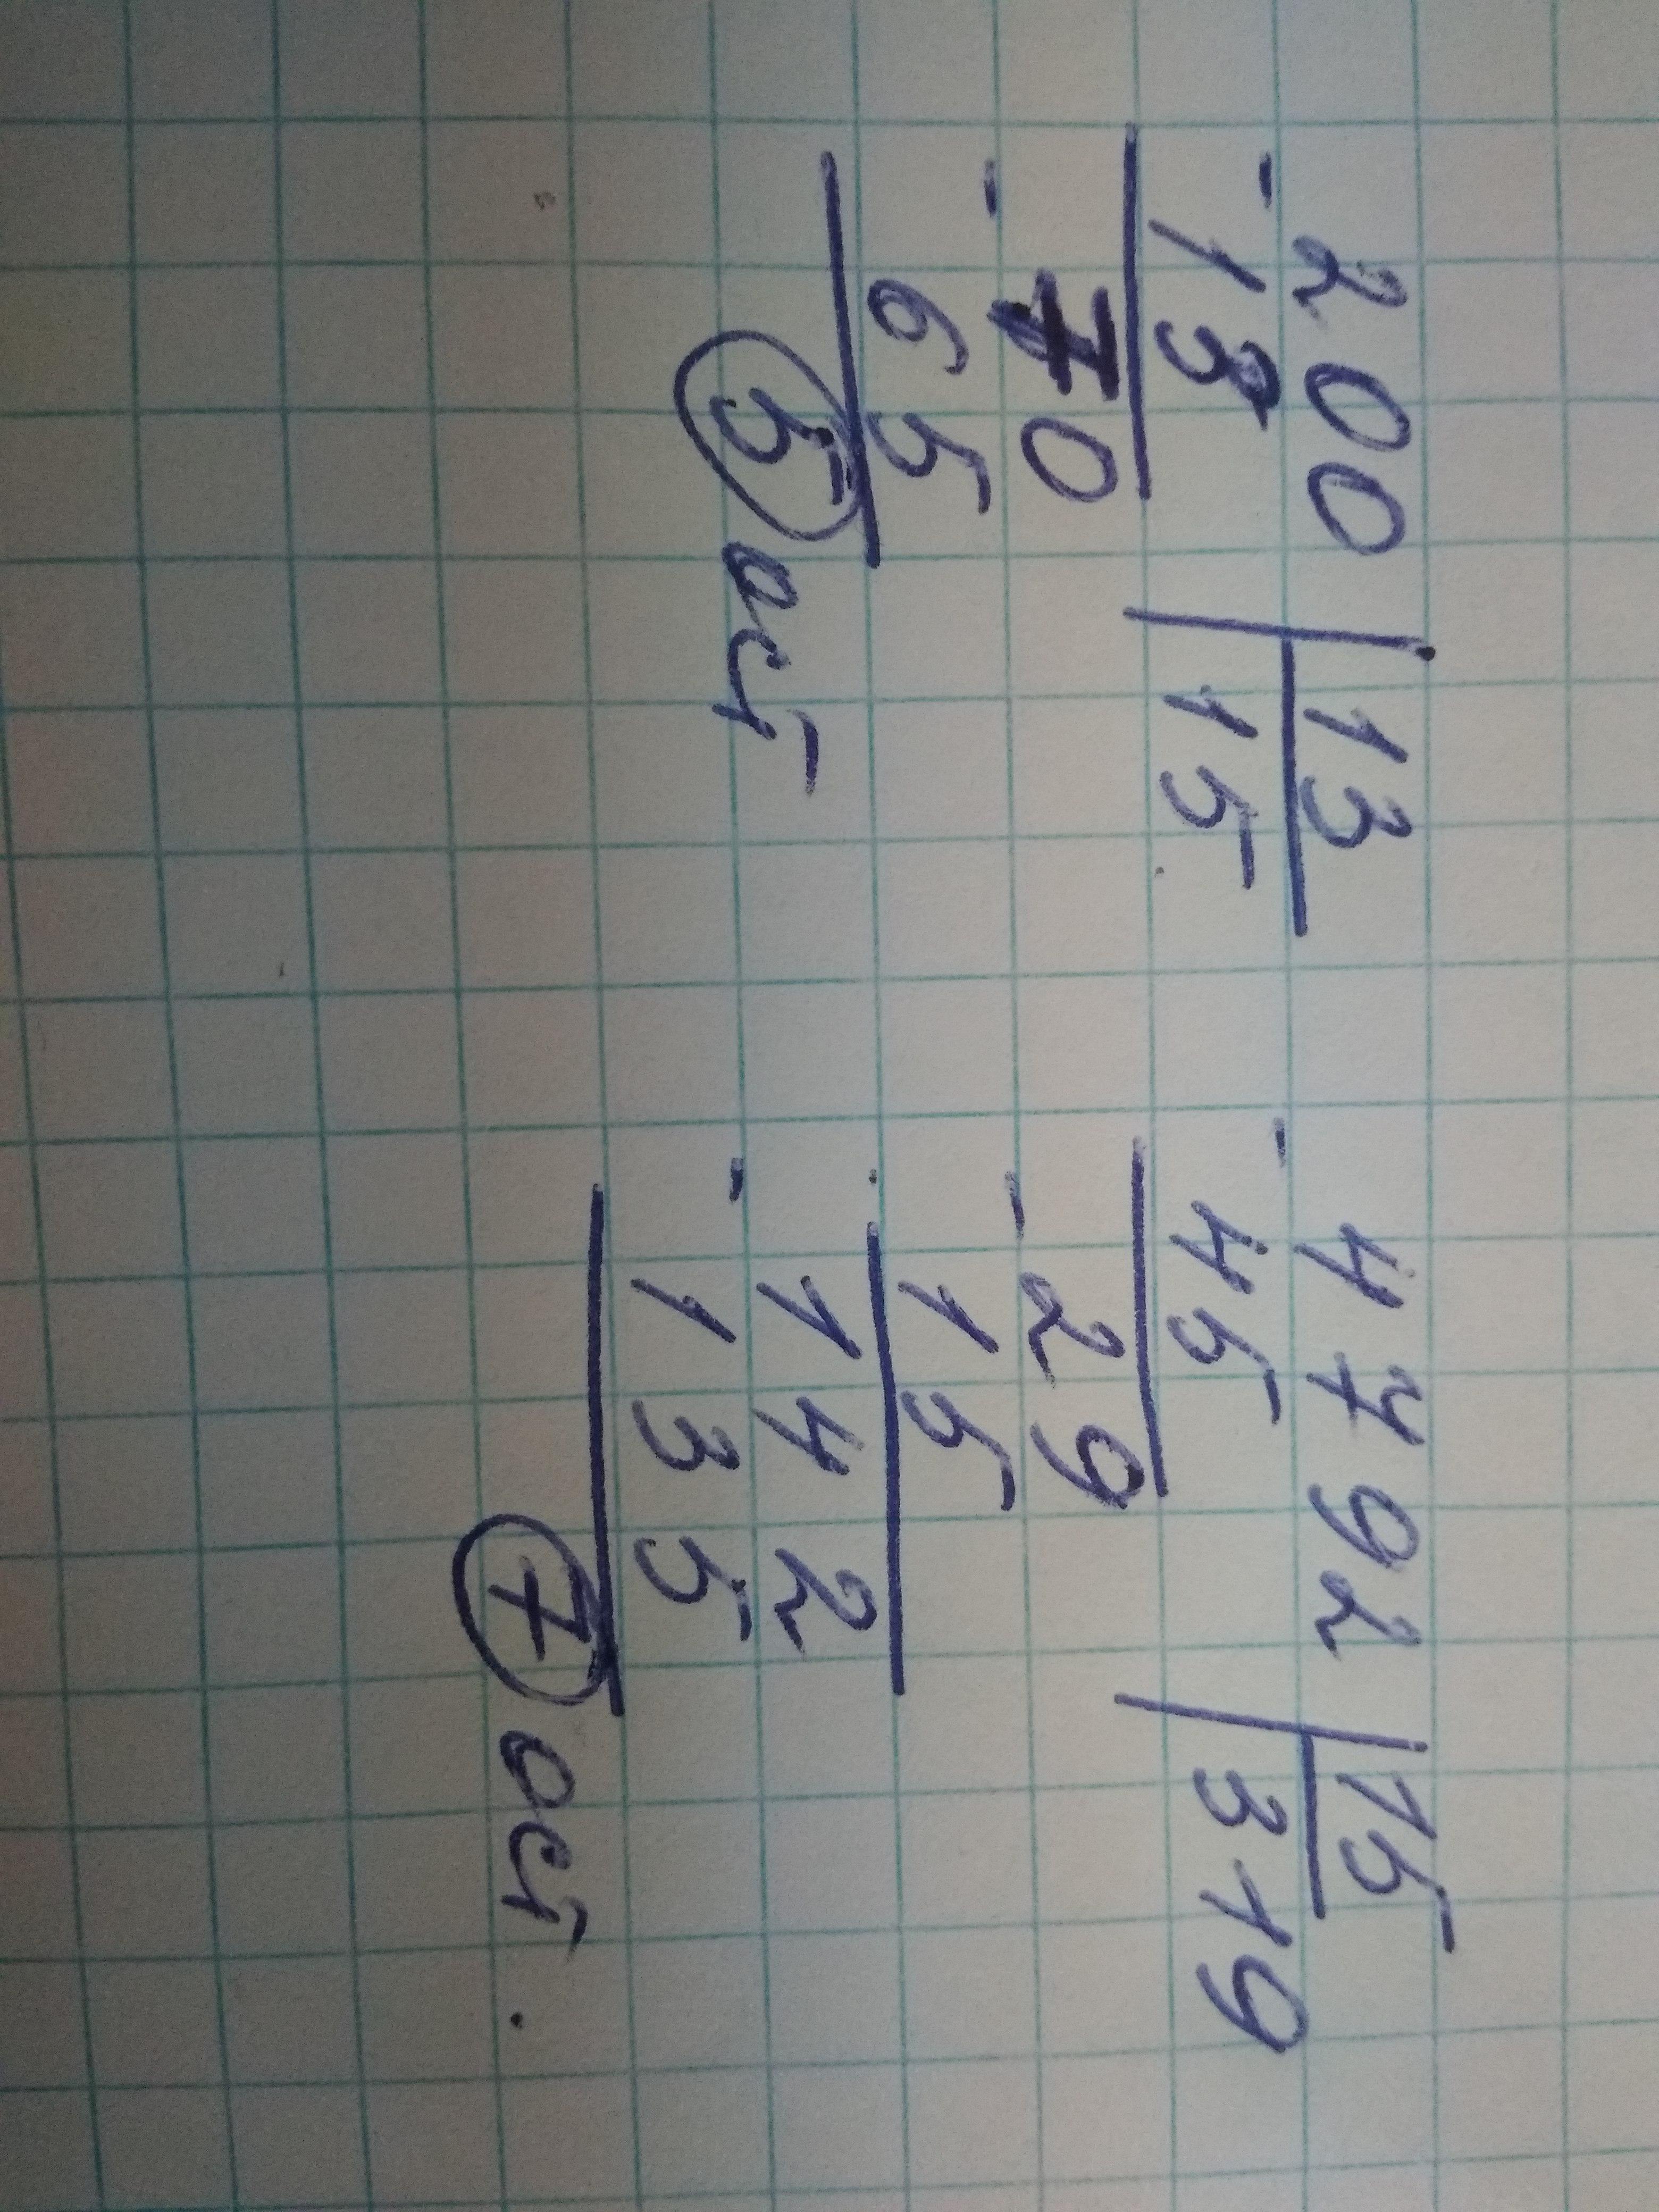 200 | 13
- 13 | 15
- 70
65
5 ост
4792 | 15
- 45 | 319
- 29
15
- 142
135
7 ост.